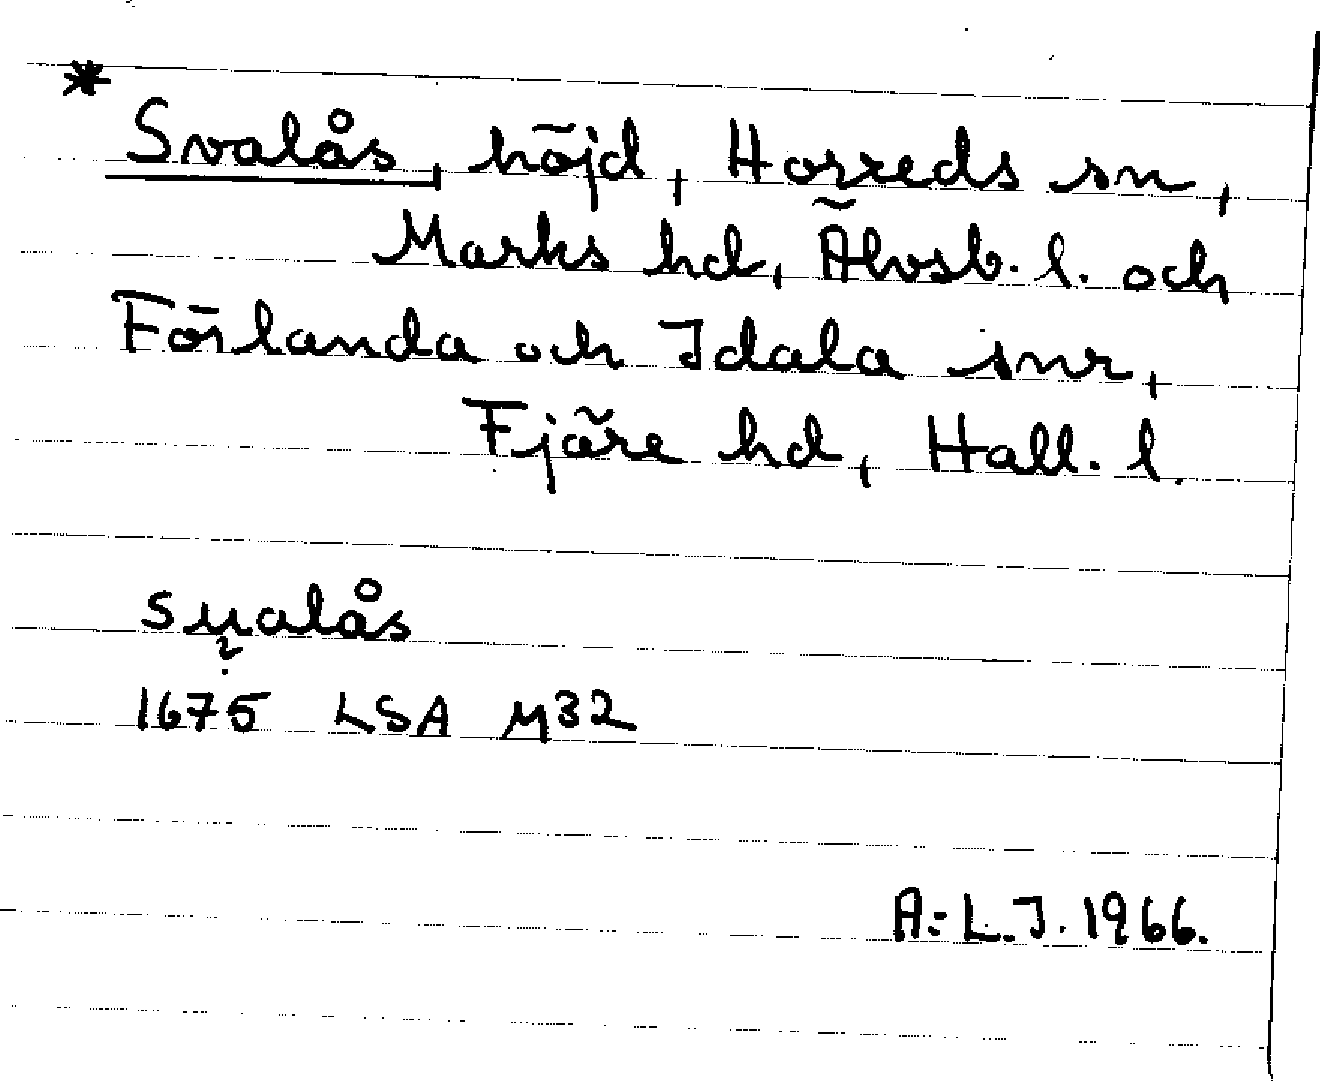 * Svalås, höjd, Horreds sn,
Marks hd, Älvsb. l. och
Förlanda och Idala snr,
Fjäre hd, Hall. l.
Sualås
?
1675 LSA M32
A.-L.J. 1966.